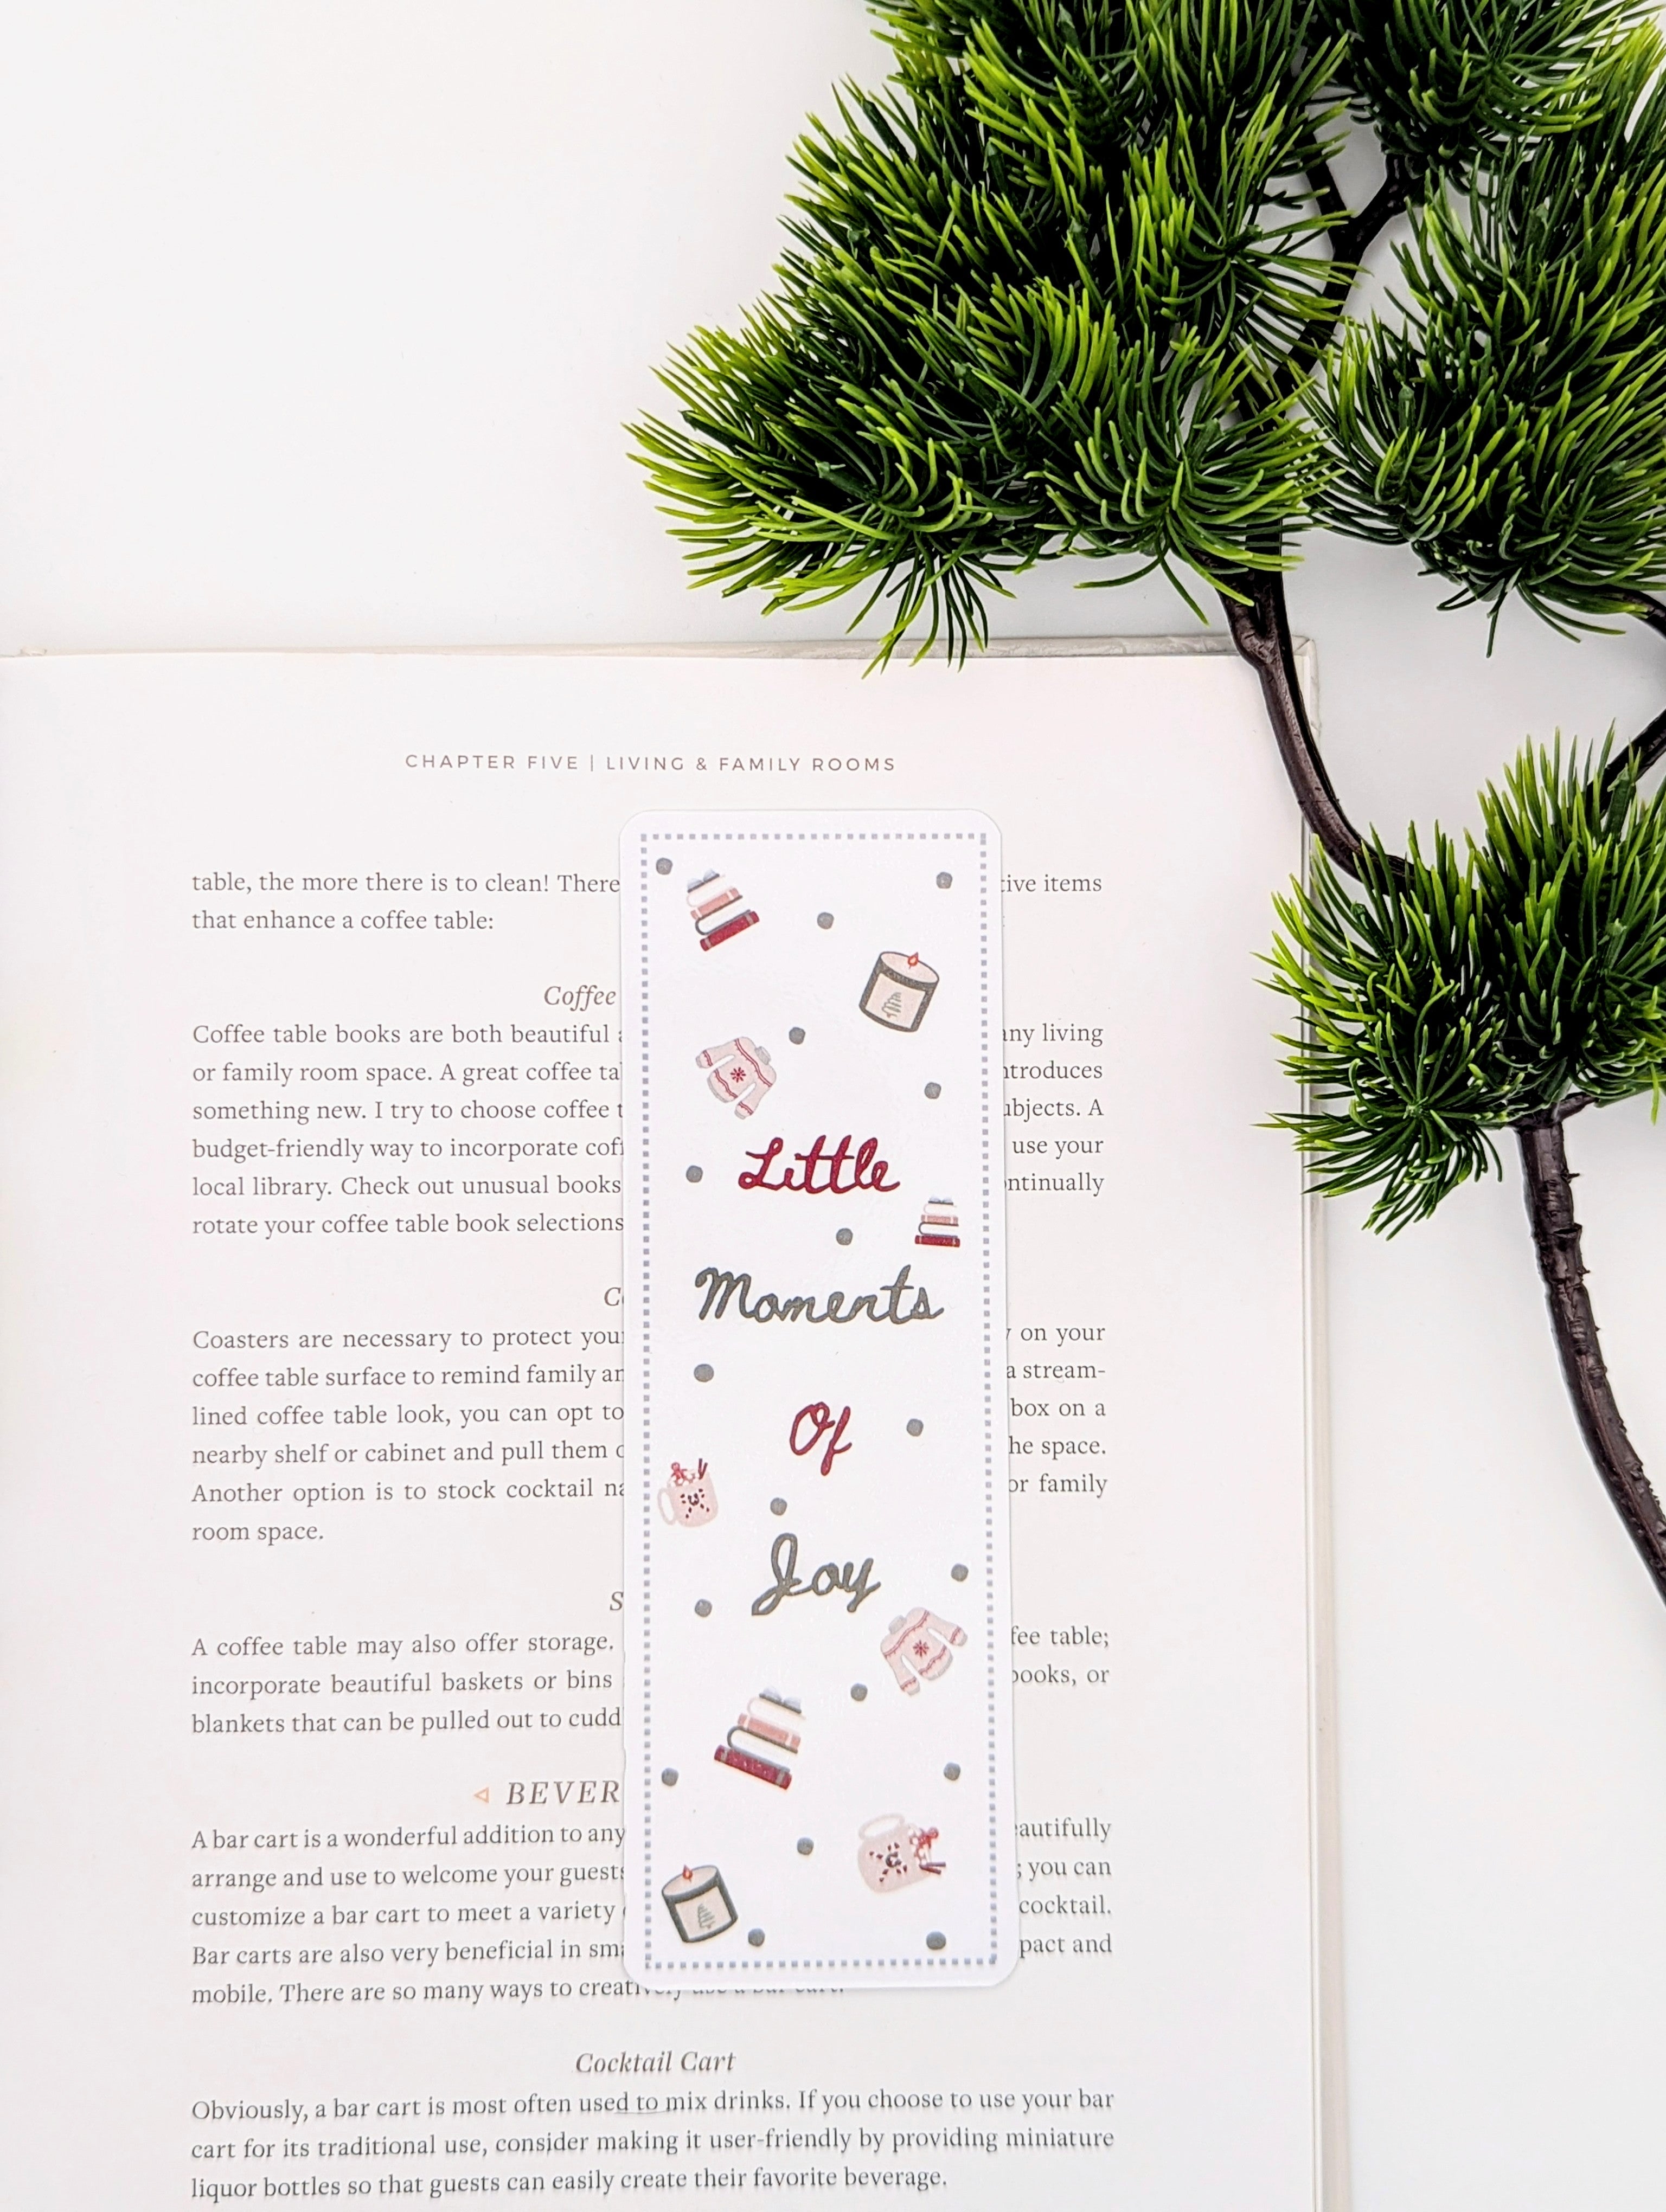 CHAPTER FIVE | LIVING & FAMILY ROOMS
table, the more there is to clean! There tive items
that enhance a coffee table:
Coffee
Coffee table books are both beautiful any living
or family room space. A great coffee ntroduces
something new. I try to choose coffee ubjects. A
budget-friendly way to incorporate use your
local library. Check out unusual books ontinually
rotate your coffee table book selections
Coasters are necessary to protect on your
coffee table surface to remind family a stream-
lined coffee table look, you can opt to box on a
nearby shelf or cabinet and pull them he space.
Another option is to stock cocktail or family
room space.
A coffee table may also offer storage. fee table;
incorporate beautiful baskets or bins books, or
blankets that can be pulled out to
BEVER
A bar cart is a wonderful addition to any autifully
arrange and use to welcome your guests ; you can
customize a bar cart to meet a variety cocktail.
Bar carts are also very beneficial in pact and
mobile. There are so many ways to
Cocktail Cart
Obviously, a bar cart is most often used to mix drinks. If you choose to use your bar
cart for its traditional use, consider making it user-friendly by providing miniature
liquor bottles so that guests can easily create their favorite beverage.
Little
Moments
Of
Joy